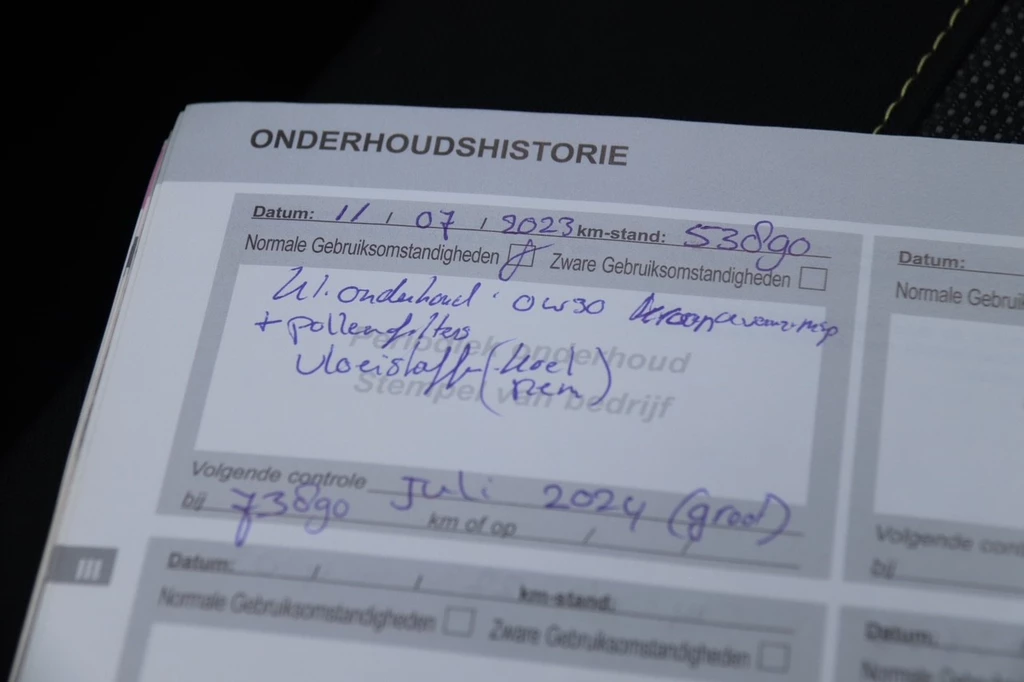 ONDERHOUDSHISTORIE
Datum: 11 / 07 / 2023 km-stand: 53890
Normale Gebruiksomstandigheden Zware Gebruiksomstandigheden
kl. onderhoud · 0W30
+ pollenfilters
Periodiek onderhoud
vloeistoffen (koel
rem)
Stempel van bedrijf
Volgende controle Juli 2024 (groot)
bij 73890 km of op / /
Datum: / / km-stand:
Normale Gebruiksomstandigheden Zware Gebruiksomstandigheden
III
Datum:
Normale Gebrui
Volgende cont
bij
Datum:
Normale Gebrui